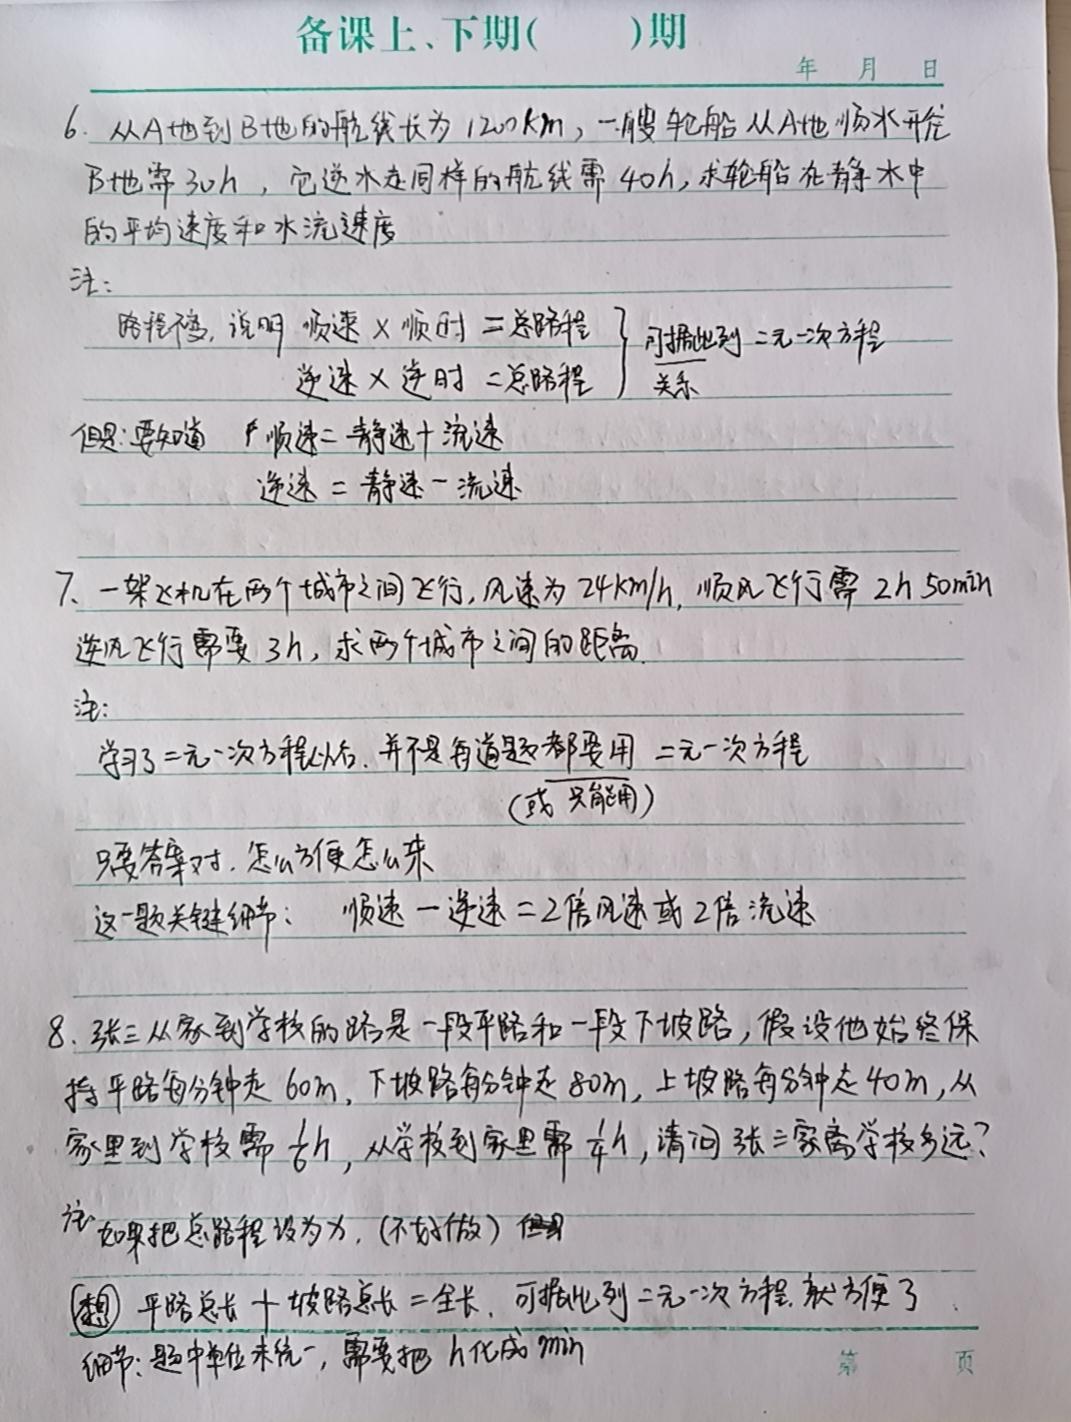 备课上、下期(　　)期
年　月　日
6. 从A地到B地的航线长为1200km,一艘轮船从A地顺水开往
B地需30h,它逆水走同样的航线需40h,求轮船在静水中
的平均速度和水流速度
注:
路程不变,说明 顺速×顺时=总路程 } 可据此列二元一次方程
逆速×逆时=总路程 关系
但是:要知道 顺速=静速+流速
逆速=静速-流速
7、一架飞机在两个城市之间飞行,风速为24km/h,顺风飞行需2h50min
逆风飞行需要3h,求两个城市之间的距离.
注:
学习了二元一次方程以后,并不是每道题都要用二元一次方程
(或只能用)
只要答案对,怎么方便怎么来
这一题关键细节: 顺速-逆速=2倍风速或2倍流速
8. 张三从家到学校的路是一段平路和一段下坡路,假设他始终保
持平路每分钟走60m,下坡路每分钟走80m,上坡路每分钟走40m,从
家里到学校需1/6h,从学校到家里需1/4h,请问张三家离学校多远?
注: 如果把总路程设为x,(不好做)
想 平路总长+坡路总长=全长,可据此列二元一次方程,就方便了.
细节:题中单位未统一,需要把h化成min
第　页